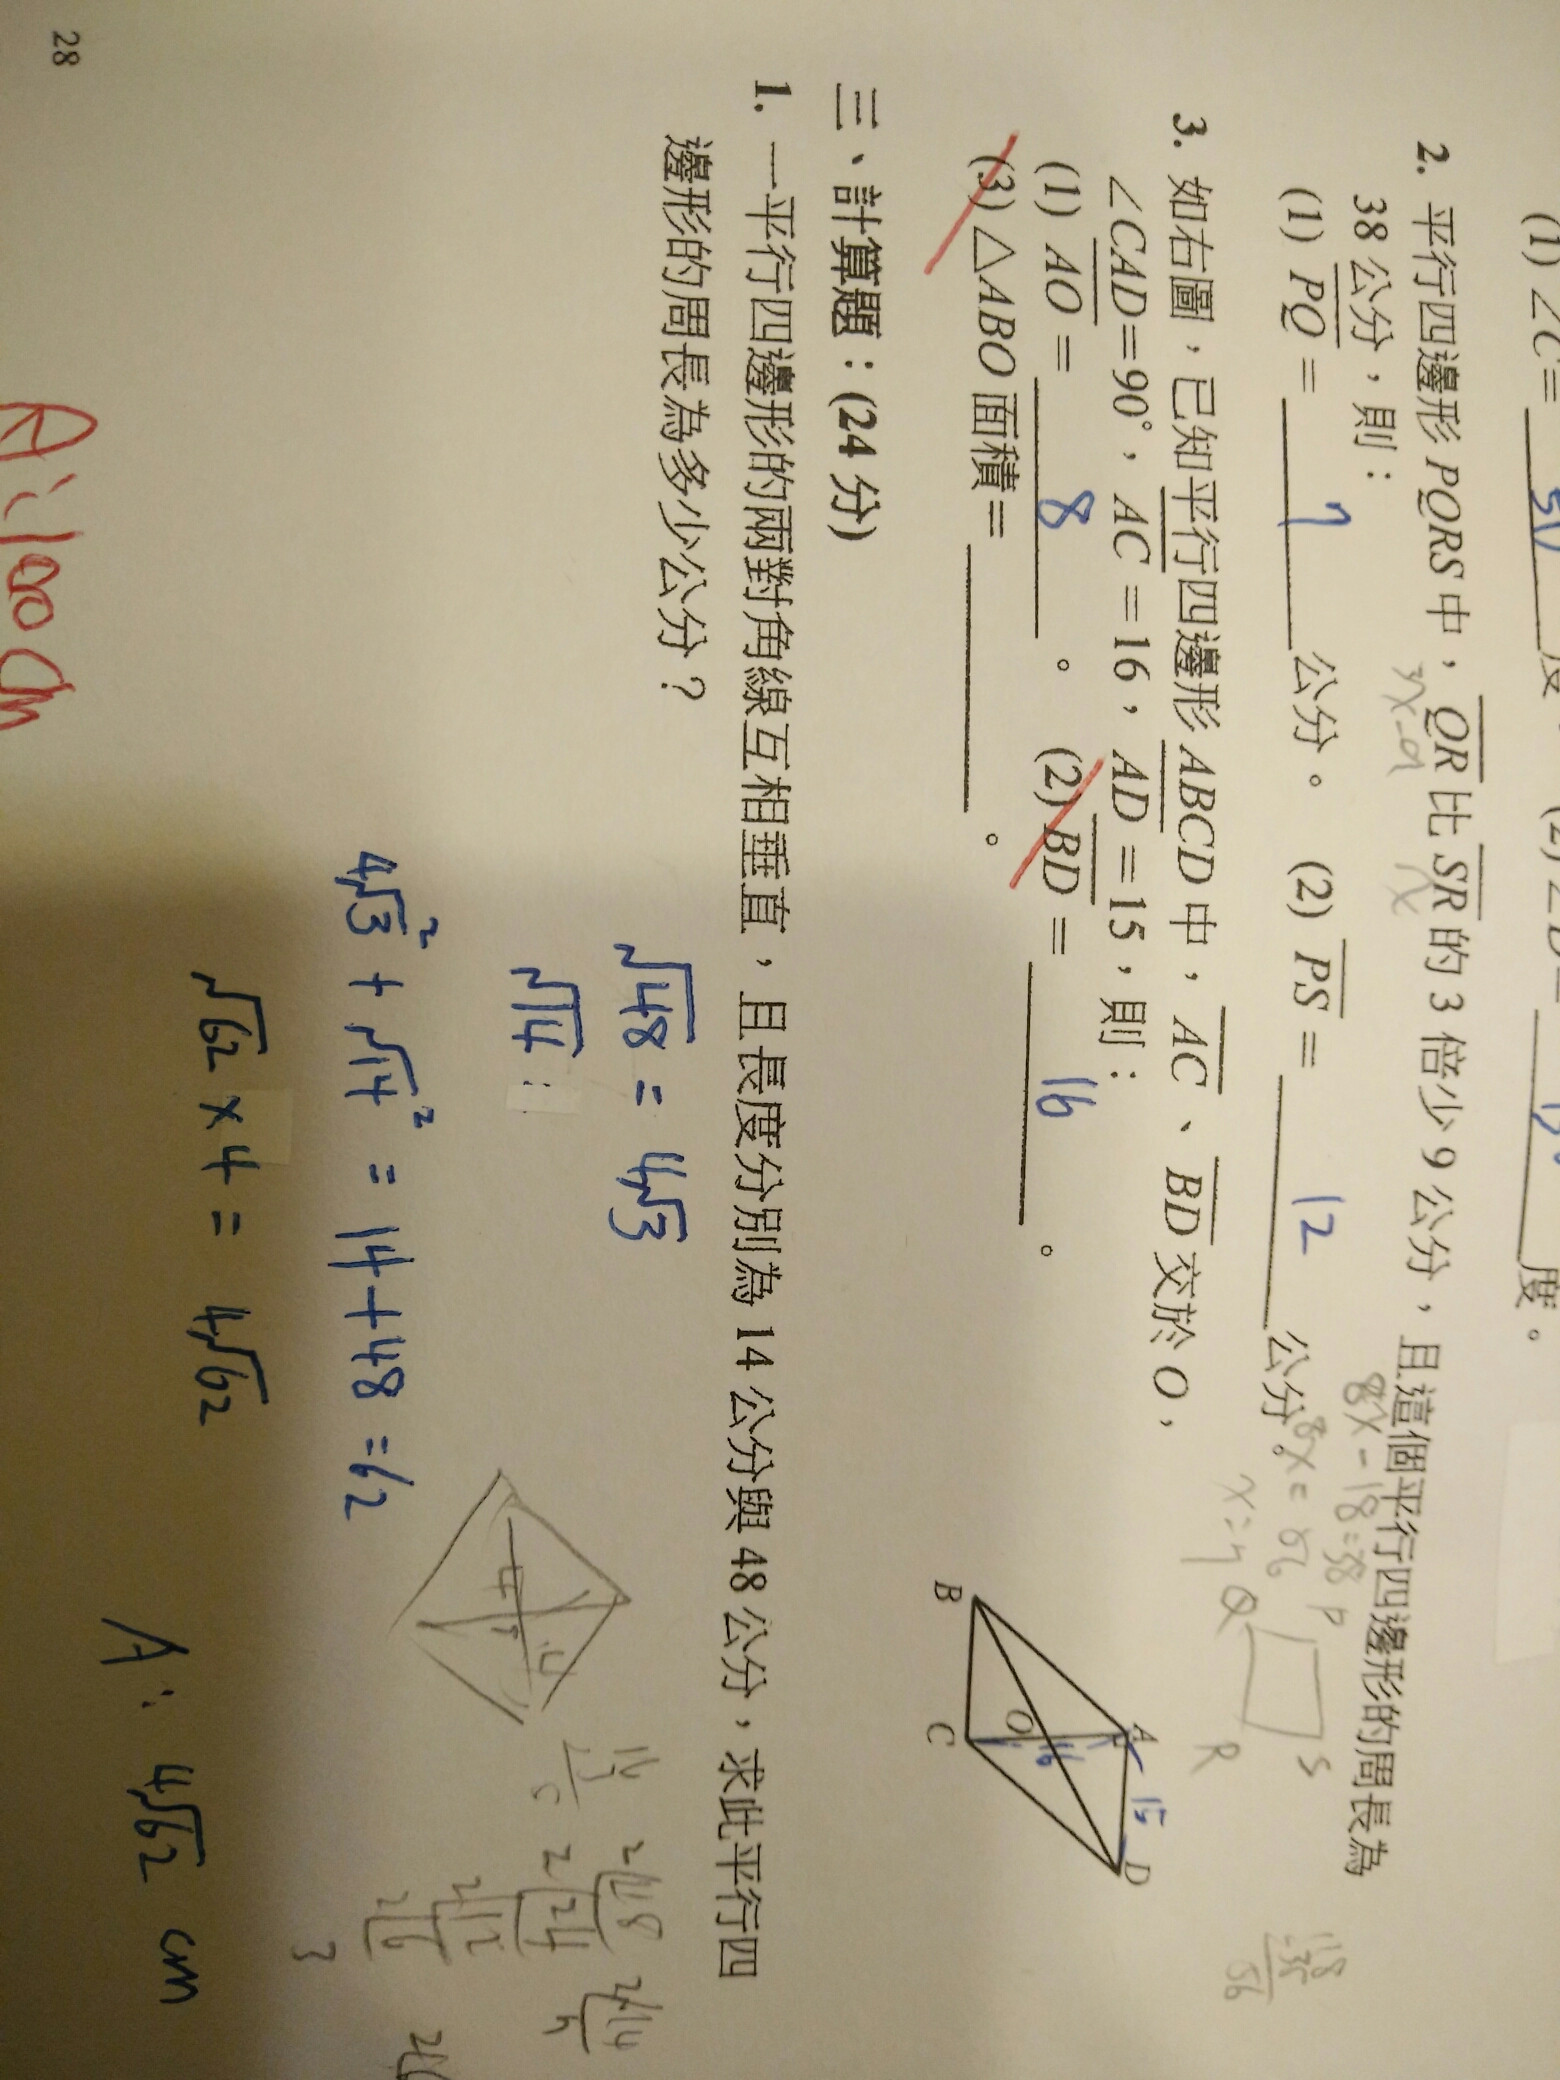 (1) ∠C=
度
(2)
度。
2. 平行四邊形 PQRS 中，QR 比 SR 的 3 倍少 9 公分，且這個平行四邊形的周長為
3x-9
x
38 公分，則：
8x-18=38
(1) PQ = 7 公分。 (2) PS = 12 公分。
8x=56
x=7
P
S
Q
R
3. 如右圖，已知平行四邊形 ABCD 中，AC、BD 交於 O，
∠CAD=90°，AC=16，AD=15，則：
(1) AO = 8 。 (2) BD = 16 。
(3) △ABO 面積= 。
A
15
D
O
16
B
C
三、計算題：(24 分)
1. 一平行四邊形的兩對角線互相垂直，且長度分別為 14 公分與 48 公分，求此平行四
邊形的周長為多少公分？
√48 = 4√3
√14 :
4√3² + √14² = 14+48 = 62
√62 × 4 = 4√62
A: 4√62 cm
A: 100 cm
28